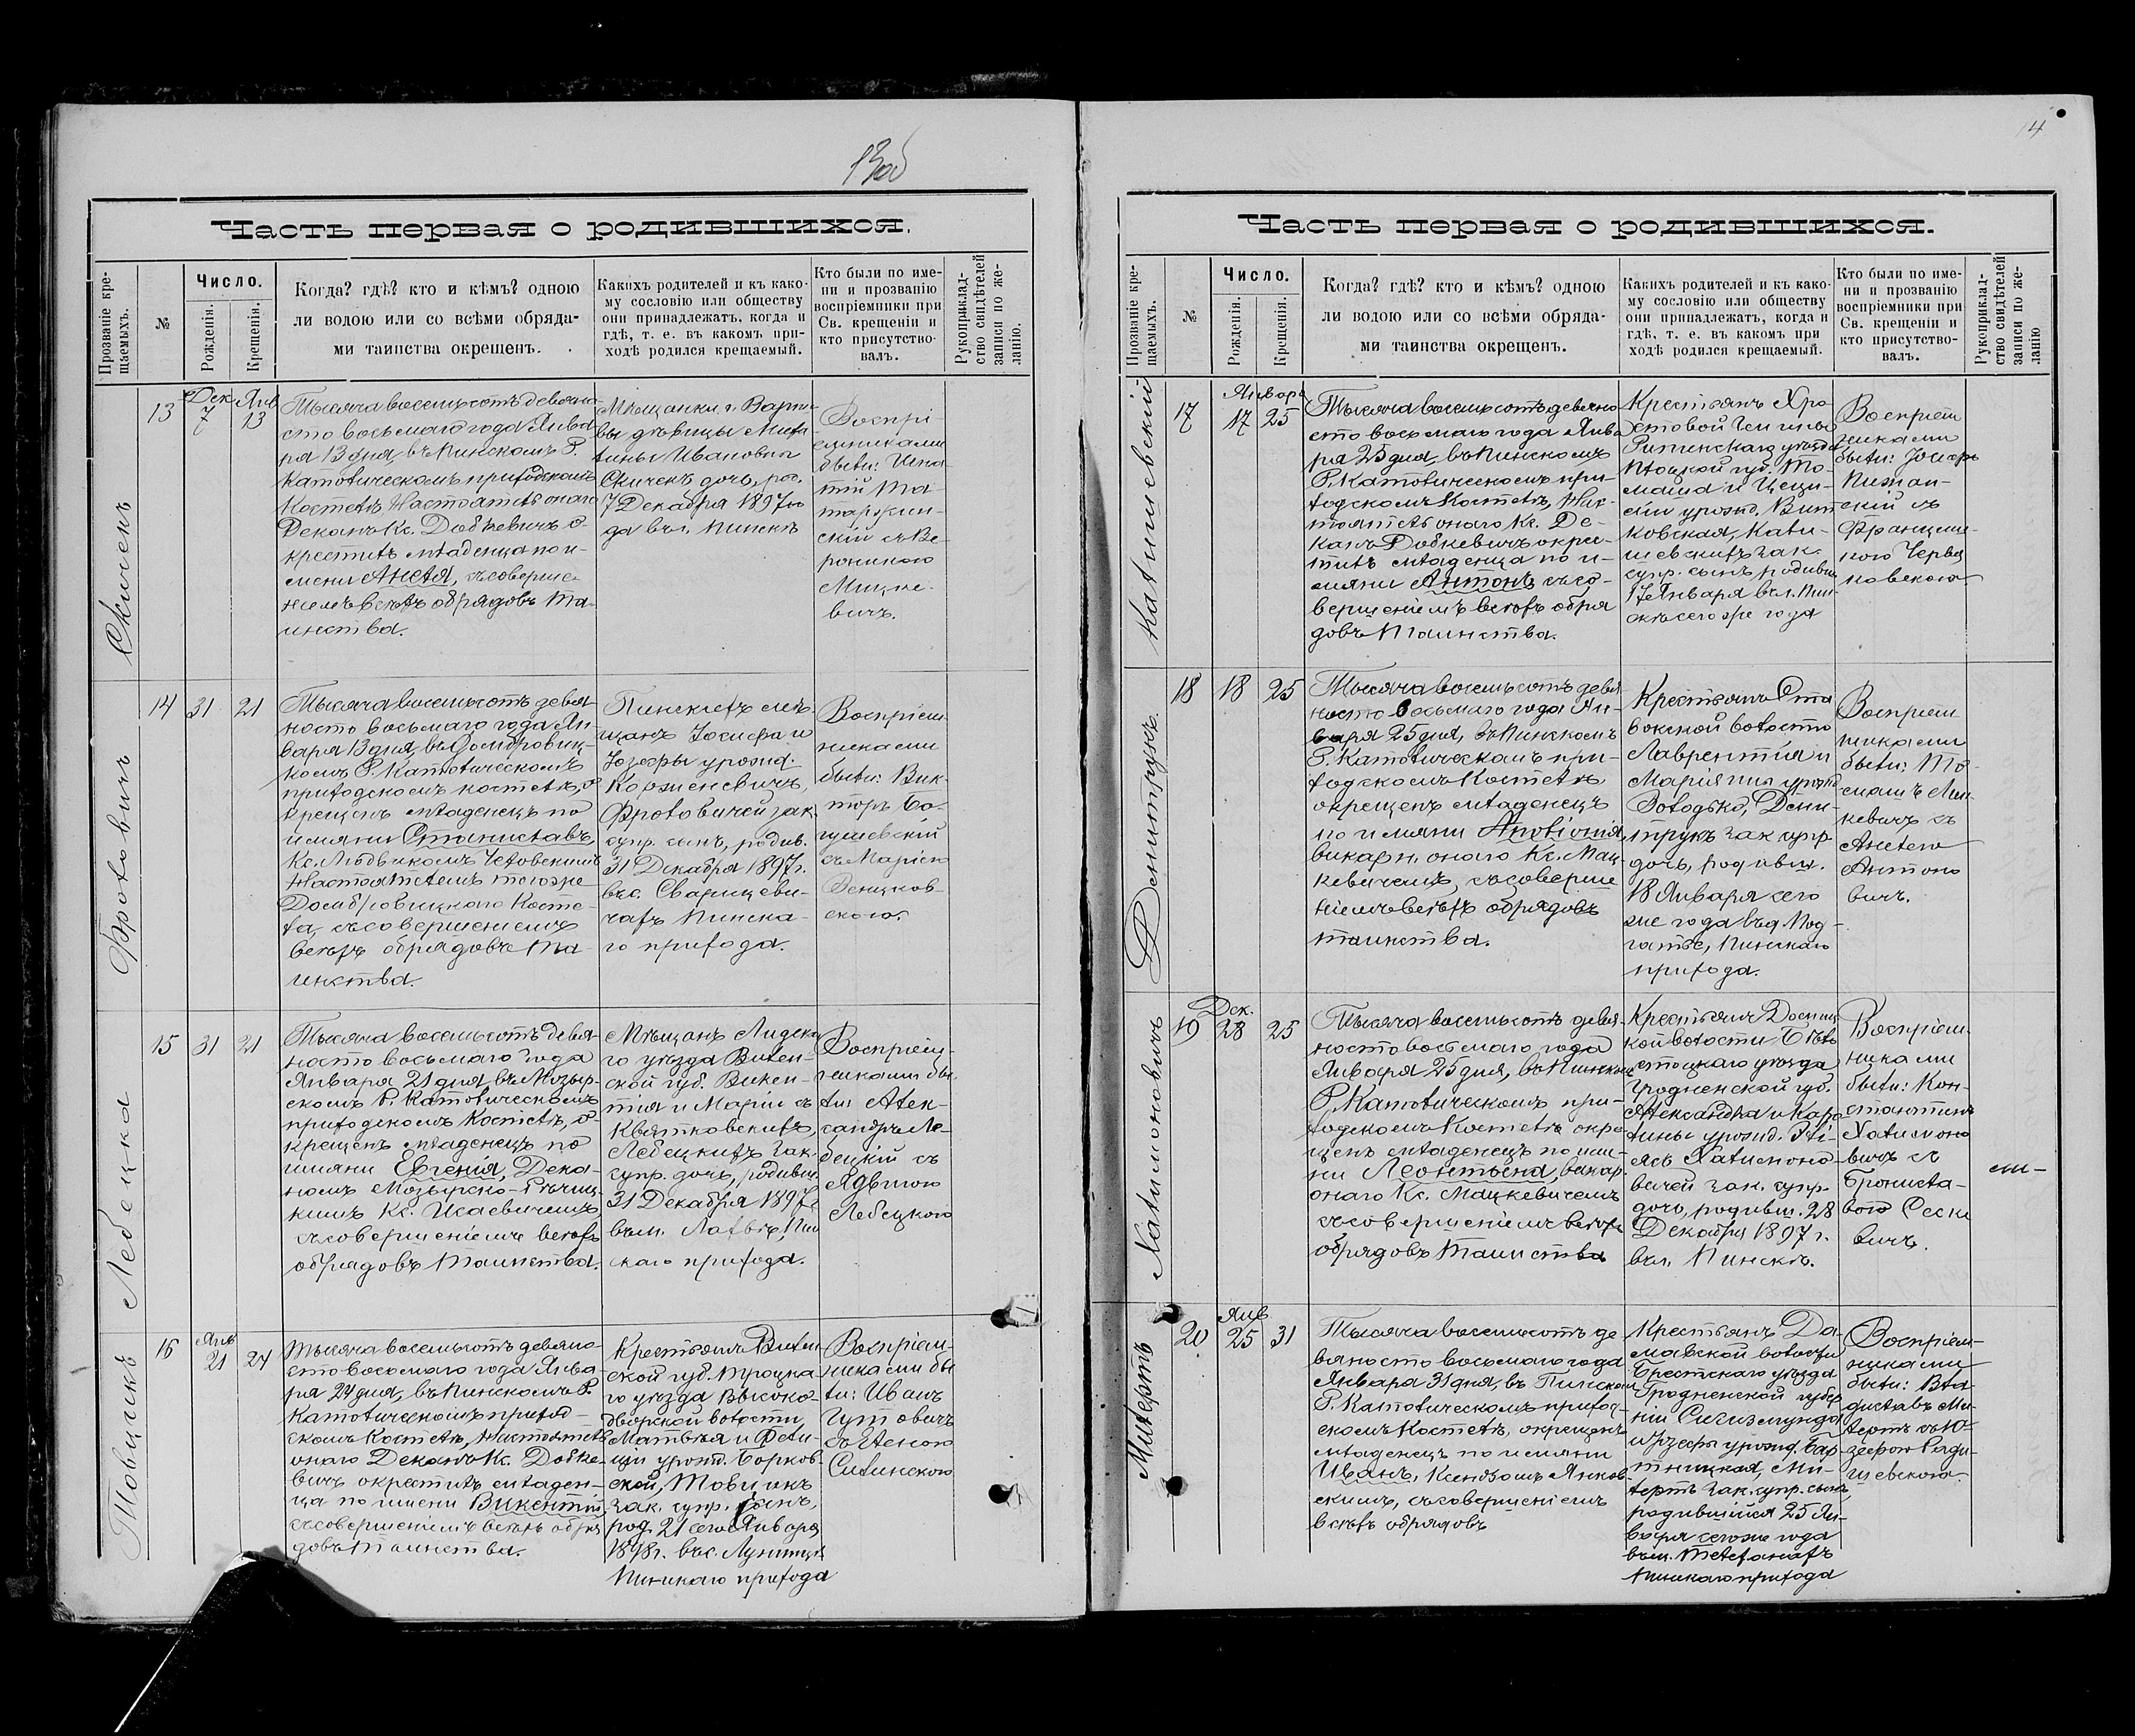 13об
Часть первая о родившихся.
Прозваніе кре-
щаемыхъ.
№
Число.
Рожденія.
Крещенія.
Когда? гдѣ? кто и кѣмъ? одною
ли водою или со всѣми обряда-
ми таинства окрещенъ.
Какихъ родителей и къ како-
му сословію или обществу
они принадлежатъ, когда и
гдѣ, т. е. въ какомъ при-
ходѣ родился крещаемый.
Кто были по име-
ни и прозванію
воспріемники при
Св. крещеніи и
кто присутство-
валъ.
Рукоприклад-
ство свидѣтелей
записи по же-
ланію.
Скиченъ
13
Дек
7
Янв
13
Тысяча восемьсотъ девяно-
сто восьмаго года Янва
ря 13 дня, въ Пинскомъ Р.
Католическомъ приходскомъ
Костелѣ Настоятель онаго
Деканъ Кс. Добкевичъ о-
крестилъ младенца по и-
мени Анеля, съ соверше-
ніемъ всѣхъ обрядовъ Та-
инства.
Мѣщанки г. Варша
вы дѣвицы Миха
лины Ивановны
Скиченъ дочь, род.
7 Декабря 1897 го
да въ г. Пинскѣ
Воспрі
емниками
были: Игна-
тій Та-
таржин-
скій съ Ве-
роникою
Мицке-
вичъ.
Фроловичъ
14
31
21
Тысяча восемьсотъ девя-
носто восьмаго года Ян-
варя 13 дня, въ Домбровиц-
комъ Р. Католическомъ
приходскомъ костелѣ, о-
крещенъ младенецъ по
имяни Станиславъ,
Кс. Людвикомъ Чеховскимъ
Настоятелемъ тогоже
Домбровицкаго Косте-
ла, съ совершеніемъ
всѣхъ обрядовъ Та-
инства.
Пинскихъ мѣ-
щанъ Іосифа и
Юзефы урожд.
Корженевичъ,
Фроловичей зак.
супр. сынъ, родив.
31 Декабря 1897 г.
въ с. Сварицеви-
чахъ Пинска-
го прихода.
Воспріем-
никами
были: Вик-
торъ Бо-
гушевскій
съ Маріею
Сенцков-
скою.
Лебецка
15
31
21
Тысяча восемьсотъ девя-
носто восьмаго года
Января 21 дня, въ Мозыр-
скомъ Р. Католическомъ
приходскомъ Костелѣ, о-
крещенъ младенецъ по
имяни Евгенія, Дека-
номъ Мозырско-Рѣчиц-
кимъ Кс. Исаевичемъ
съ совершеніемъ всѣхъ
обрядовъ Таинства.
Мѣщанъ Лидска
го уѣзда Вилен-
ской губ. Викен-
тія и Маріи съ
Квятковскихъ,
Лебецкихъ зак.
супр. дочь, родивш.
31 Декабря 1897 г.
въ м. Лахвѣ, Пин
скаго прихода.
Воспріем-
никами бы-
ли Алек-
сандръ Ле-
бецкій съ
Ядвигою
Лебецкою
Товцикъ
16
Янв
21
24
Тысяча восемьсотъ девяно-
сто восьмаго года Янва
ря 24 дня, въ Пинскомъ Р.
Католическомъ приход-
скомъ Костелѣ, Настоятель
онаго Деканъ Кс. Добке-
вичъ окрестилъ младен-
ца по имени Викентій,
съ совершеніемъ всѣхъ обря
довъ Таинства.
Крестьянъ Вилен
ской губ. Троцка
го уѣзда Высоко-
дворской волости,
Матвѣя и Фели-
ціи урожд. Борков-
ской, Товцикъ
зак. супр. сынъ,
род. 21 сего Января
1898 г. въ с. Лунинцѣ
Пинскаго прихода
Воспріем-
никами бы
ли: Иванъ
Гутовичъ
съ Еленою
Силинскою
14
Часть первая о родившихся.
Прозваніе кре-
щаемыхъ.
№
Число.
Рожденія.
Крещенія.
Когда? гдѣ? кто и кѣмъ? одною
ли водою или со всѣми обряда-
ми таинства окрещенъ.
Какихъ родителей и къ како-
му сословію или обществу
они принадлежатъ, когда и
гдѣ, т. е. въ какомъ при
ходѣ родился крещаемый.
Кто были по име-
ни и прозванію
воспріемники при
Св. крещеніи и
кто присутство-
валъ.
Рукоприклад-
ство свидѣтелей
записи по же-
ланію
Калишевскій
17
Январь
17
25
Тысяча восемьсотъ девяно
сто восьмаго года Янва
ря 25 дня, въ Пинскомъ
Р. Католическомъ при-
ходскомъ Костелѣ, Нас-
тоятель онаго Кс. Де-
канъ Добкевичъ окрес-
тилъ младенца по и-
мяни Антонъ съ со-
вершеніемъ всѣхъ обря
довъ Таинства.
Крестьянъ Хро-
стовой Гмины
Рипинскаго уѣзда
Плоцкой губ. То-
маша и Цеци-
ліи урожд. Вит
ковская, Кали-
шевскихъ зак.
супр. сынъ родивш.
17 Января въ г. Пин-
скѣ сего же года
Воспріем
никами
были: Іосифъ
скій съ
Францишк
кою Червя
ковскою
Дмитрукъ.
18
18
25
Тысяча восемьсотъ девя-
носто восьмаго года Ян-
варя 25 дня, въ Пинскомъ
Р. Католическомъ при-
ходскомъ Костелѣ
окрещенъ младенецъ
по имяни Аполіонія,
викар. онаго Кс. Мац-
кевичемъ, съ соверше
ніемъ всѣхъ обрядовъ
таинства.
Крестьянъ Ста
вокской волости
Лаврентія и
Маріянны урожд
Володько, Дми-
трукъ зак супр.
дочь, родивш.
18 Января сего
же года въ д. Под-
гатье, Пинскаго
прихода.
Воспріем
никами
были: То-
машъ Мин-
кевичъ съ
Анелею
Антоно
вичъ.
Халимоновичъ
19
Дек.
28
25
Тысяча восемьсотъ девя-
носто восьмаго года
Января 25 дня, въ Пинскомъ
Р. Католическомъ при-
ходскомъ Костелѣ окре-
щенъ младенецъ по име-
ни Леонтьена, викар.
онаго Кс. Мацкевичемъ
съ совершеніемъ всѣхъ
обрядовъ Таинства
Крестьянъ
кой волости Бѣло
стоцкаго уѣзда
Гродненской губ.
Александра и Каро
лины урожд.
Халимоно-
вичей зак. супр.
дочь, родивш. 28
Декабря 1897 г.
въ г. Пинскѣ.
Воспріем-
никами
были: Кон-
стантинъ
Халимоно
вичъ съ
Брониста-
вою Сеске
вичъ.
Милертъ
20
Янв
25
31
Тысяча восемьсотъ де
вяносто восьмаго года
Января 31 дня, въ Пинском
Р. Католическомъ приход-
скомъ Костелѣ, окрещенъ
младенецъ по имяни
Иванъ, Ксендзомъ Янков-
скимъ, съ совершеніемъ
всѣхъ обрядовъ
Крестьянъ До-
мавской волости
Брестскаго уѣзда
Гродненской губер
ніи Сигизмунда
и Юзефы урожд. Бар
тницкая, Ми-
лертъ зак. супр. сынъ,
родившійся 25 Ян-
варя сегоже года
въ им. Телеханахъ
Пинскаго прихода
Воспріем-
никами
были: Вла-
диславъ Ми-
лертъ съ Ю-
зефою Ради-
шевскою.